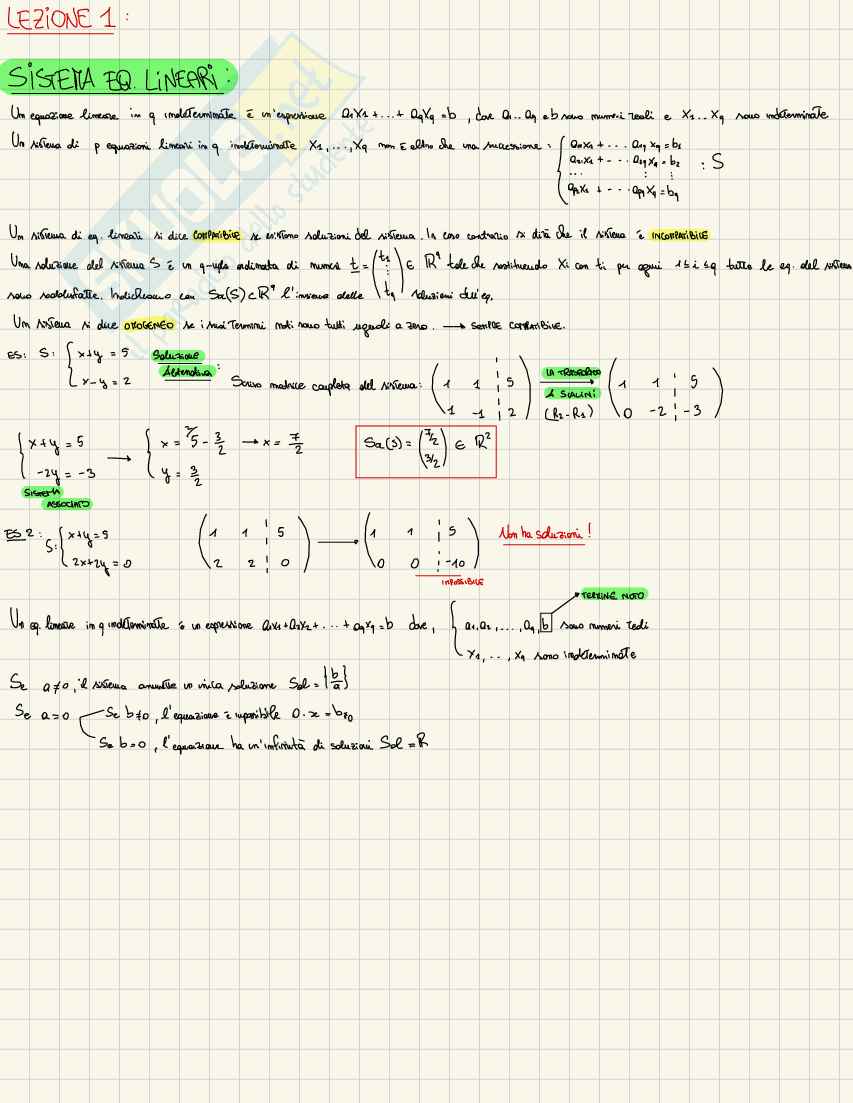 LEZIONE 1 :
SISTEMA EQ. LINEARI :
Un'equazione lineare in q indeterminate è un'espressione a₁x₁ + ... + a_q x_q = b , dove a₁...a_q e b sono numeri reali e x₁...x_q sono indeterminate
Un sistema di p equazioni lineari in q indeterminate x₁, ..., x_q non è altro che una successione : { a₁₁x₁ + ... a₁q x_q = b₁
a₂₁x₁ + ... a₂q x_q = b₂ : S
... ⋮ ⋮
a_p₁x₁ + ... a_pq x_q = b_q
Un sistema di eq. lineari si dice COMPATIBILE se esistono soluzioni del sistema. In caso contrario si dirà che il sistema è INCOMPATIBILE
Una soluzione del sistema S è un q-upla ordinata di numeri t = (t₁ ⋮ t_q) ∈ ℝ^q tale che sostituendo xi con ti per ogni 1 ≤ i ≤ q tutte le eq. del sistema
sono soddisfatte. Indichiamo con Sol(S) ⊂ ℝ^q l'insieme delle soluzioni dell'eq.
Un sistema si dice OMOGENEO se i suoi termini noti sono tutti uguali a zero. → SEMPRE COMPATIBILE.
ES: S: { x+y = 5
x-y = 2
Soluzione
Alternativa :
Scrivo matrice completa del sistema: ( 1 1 ¦ 5
1 -1 ¦ 2 )
LA TRASFORMO
A SCALINI
(R₂-R₁)
( 1 1 ¦ 5
0 -2 ¦ -3 )
{ x+y = 5
-2y = -3
SISTEMA
ASSOCIATO
→ { x = 5 - 3/2 → x = 7/2
y = 3/2
Sol(S) = (7/2 3/2) ∈ ℝ²
ES 2 : S: { x+y=5
2x+2y=0
( 1 1 ¦ 5
2 2 ¦ 0 )
→ ( 1 1 ¦ 5
0 0 ¦ -10 )
IMPOSSIBILE
Non ha soluzioni !
TERMINE NOTO
Un eq. lineare in q indeterminate è un espressione a₁x₁ + a₂x₂ + ... + a_q x_q = b dove, { a₁, a₂, ..., a_q, b sono numeri reali
x₁, ..., x_q sono indeterminate
Se a≠0, il sistema ammette un unica soluzione Sol = {b/a}
Se a=0 Se b≠0, l'equazione è impossibile 0·x = b≠0
Se b=0, l'equazione ha un'infinità di soluzioni Sol = ℝ